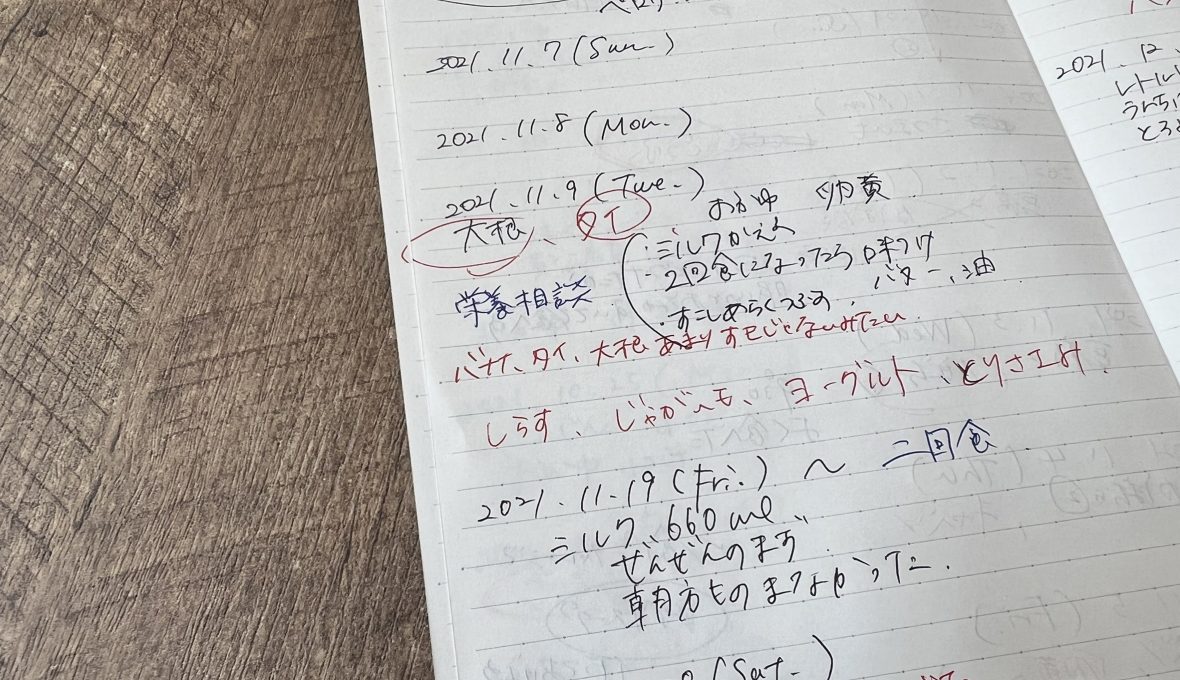 2021.11.7 (Sun.)
2021.11.8 (Mon.)
2021.11.9 (Tue.)
大根、タイ
おかゆ 卵黄
・ミルクかえる
・2回食になったら味つけ
バター、油
・すこしあらくつぶす.
栄養相談
バナナ、タイ、大根あまりすきじゃないみたい.
しらす、じゃがいも、ヨーグルト、とりささみ.
2021.11.19 (Fri.) 〜 二回食
ミルク 660ml
ぜんぜんのまず
朝方ものまなかった.
(Sat.)
2021.12.